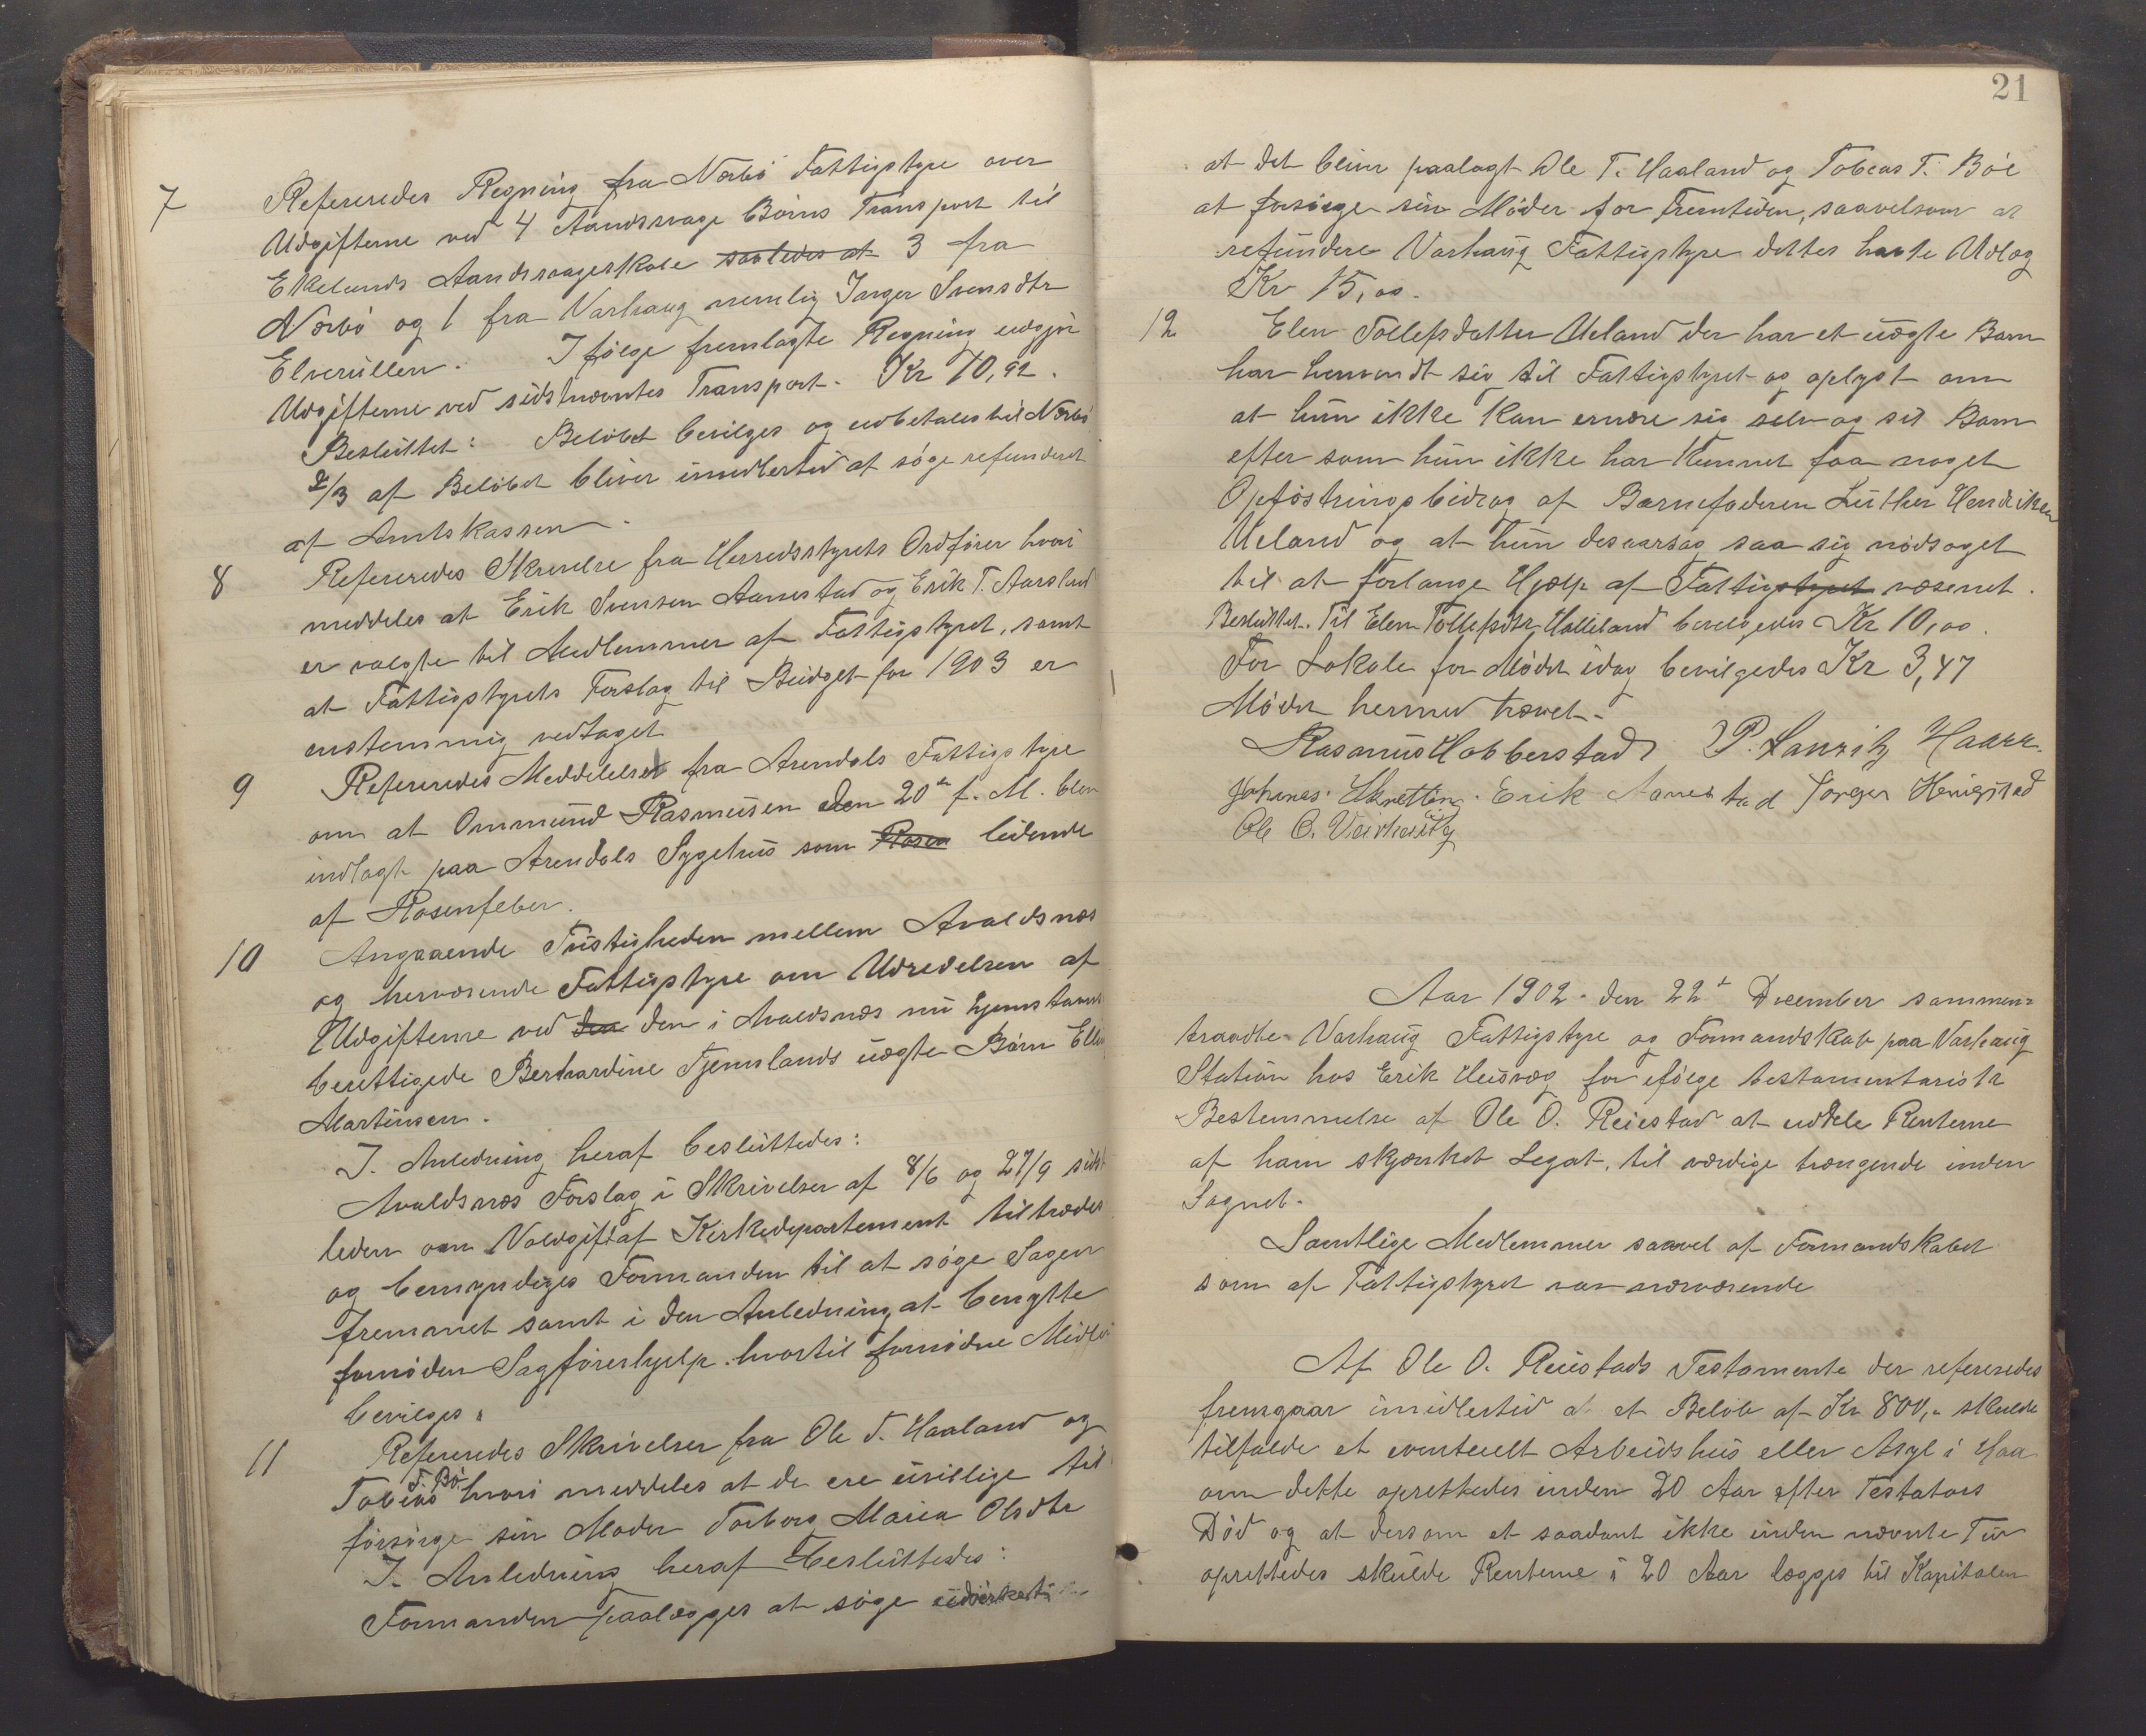 7 Refereredes Regning fra Nærbø Fattigstyre over
Udgifterne ved 4 Aandssvage Børns Transport til
Ekelunds Aandssvageskole saaledes at 3 fra
Nærbø og 1 fra Varhaug nemlig Inger Svensdtr
Elverullen. I følge fremlagte Regning udgjør
Udgifterne ved sidstnævntes Transport. Kr 70,92.
Besluttet: Beløbet bevilges og udbetales til Nærbø
2/3 af Beløbet bliver imidlertid at søge refunderet
af Amtskassen.
8 Refereredes Skrivelse fra Herredsstyrets Ordfører hvori
meddeles at Erik Svensen Aanestad og Erik T. Aarsland
er valgte til Medlemmer af Fattigstyret, samt
at Fattigstyrets Forslag til Budget for 1903 er
enstemmig vedtaget
9 Refereredes Meddelelse fra Arendals Fattigstyre
om at Ommund Rasmusen den 20de f. M. blev
indlagt paa Arendals Sygehus som Rosen lidende
af Rosenfeber.
10 Angaaende Tvistigheden mellem Avaldsnæs
og herværende Fattigstyre om Udredelsen af
Udgifterne ved den den i Avaldsnæs nu hjemstavns
berettigede Berhardine Tjemslands uægte Barn Elling
Martinsen.
I. Anledning heraf besluttedes:
Avaldsnæs Forslag i Skrivelser af 8/6 og 27/9 sidst
leden om Voldgift af Kirkedepartement tiltrædes
og bemyndiges Formanden til at søge Sagen
fremmet samt i den Anledning at benytte
fornøden Sagførerhjelp. hvortil fornødne Midler
bevilges.
11 Refereredes Skrivelser fra Ole T. Haaland og
Tobias T. Bø hvori meddeles at de ere uvillige til
forsørge sin Moder Torborg Maria Olsdtr
I. Anledning heraf besluttedes:
Formanden paalægges at søge udvirket
21
at det bliver paalagt Ole T. Haaland og Tobias T. Bøe
at forsørge sin Moder for Fremtiden, saavelsom at
refundere Varhaug Fattigstyre dettes havte Udlæg
Kr 15,00.
12 Elen Tollefsdatter Ueland der har et uægte Barn
har henvendt sig til Fattigstyret og oplyst om
at hun ikke kan ernære sig selv og sit Barn
efter som hun ikke har kunnet faa noget
Opfostringsbidrag af Barnefaderen Luther Hendriksen
Ueland og at hun desaarsag saa sig nødsaget
til at forlange Hjælp af Fattigstyret væsenet.
Besluttet. Til Elen Tollefsdtr Hølleland bevilgedes Kr 10,00.
For Lokale for Mødet idag bevilgedes Kr 3,47
Mødet hermed hævet.
Rasmus Hobberstad P. Lauritz Haarr.
Johanes Skretting. Erik Aanestad Torger Hængstad
Ole O. Varhaug
Aar 1902. den 22de December sammen=
traadte Varhaug Fattigstyre og Formandskab paa Varhaug
Station hos Erik Ueisvæg for ifølge testamentarisk
Bestemmelse af Ole O. Reiestad at uddele Renterne
af ham skjænket Legat, til værdige trængende inden
Sognet.
Samtlige Medlemmer saavel af Formandskabet
som af Fattigstyret var nærværende
Af Ole O. Reiestads Testamente der refereredes
fremgaar imidlertid at et Beløb af Kr 800,- skulde
tilfalde et eventuelt Arbeidshus eller Asyl i Haa
om dette oprettedes inden 20 Aar efter Testators
Død og at dersom et saadant ikke inden nævnte Tid
oprettedes skulde Renterne i 20 Aar lægges til Kapitalen